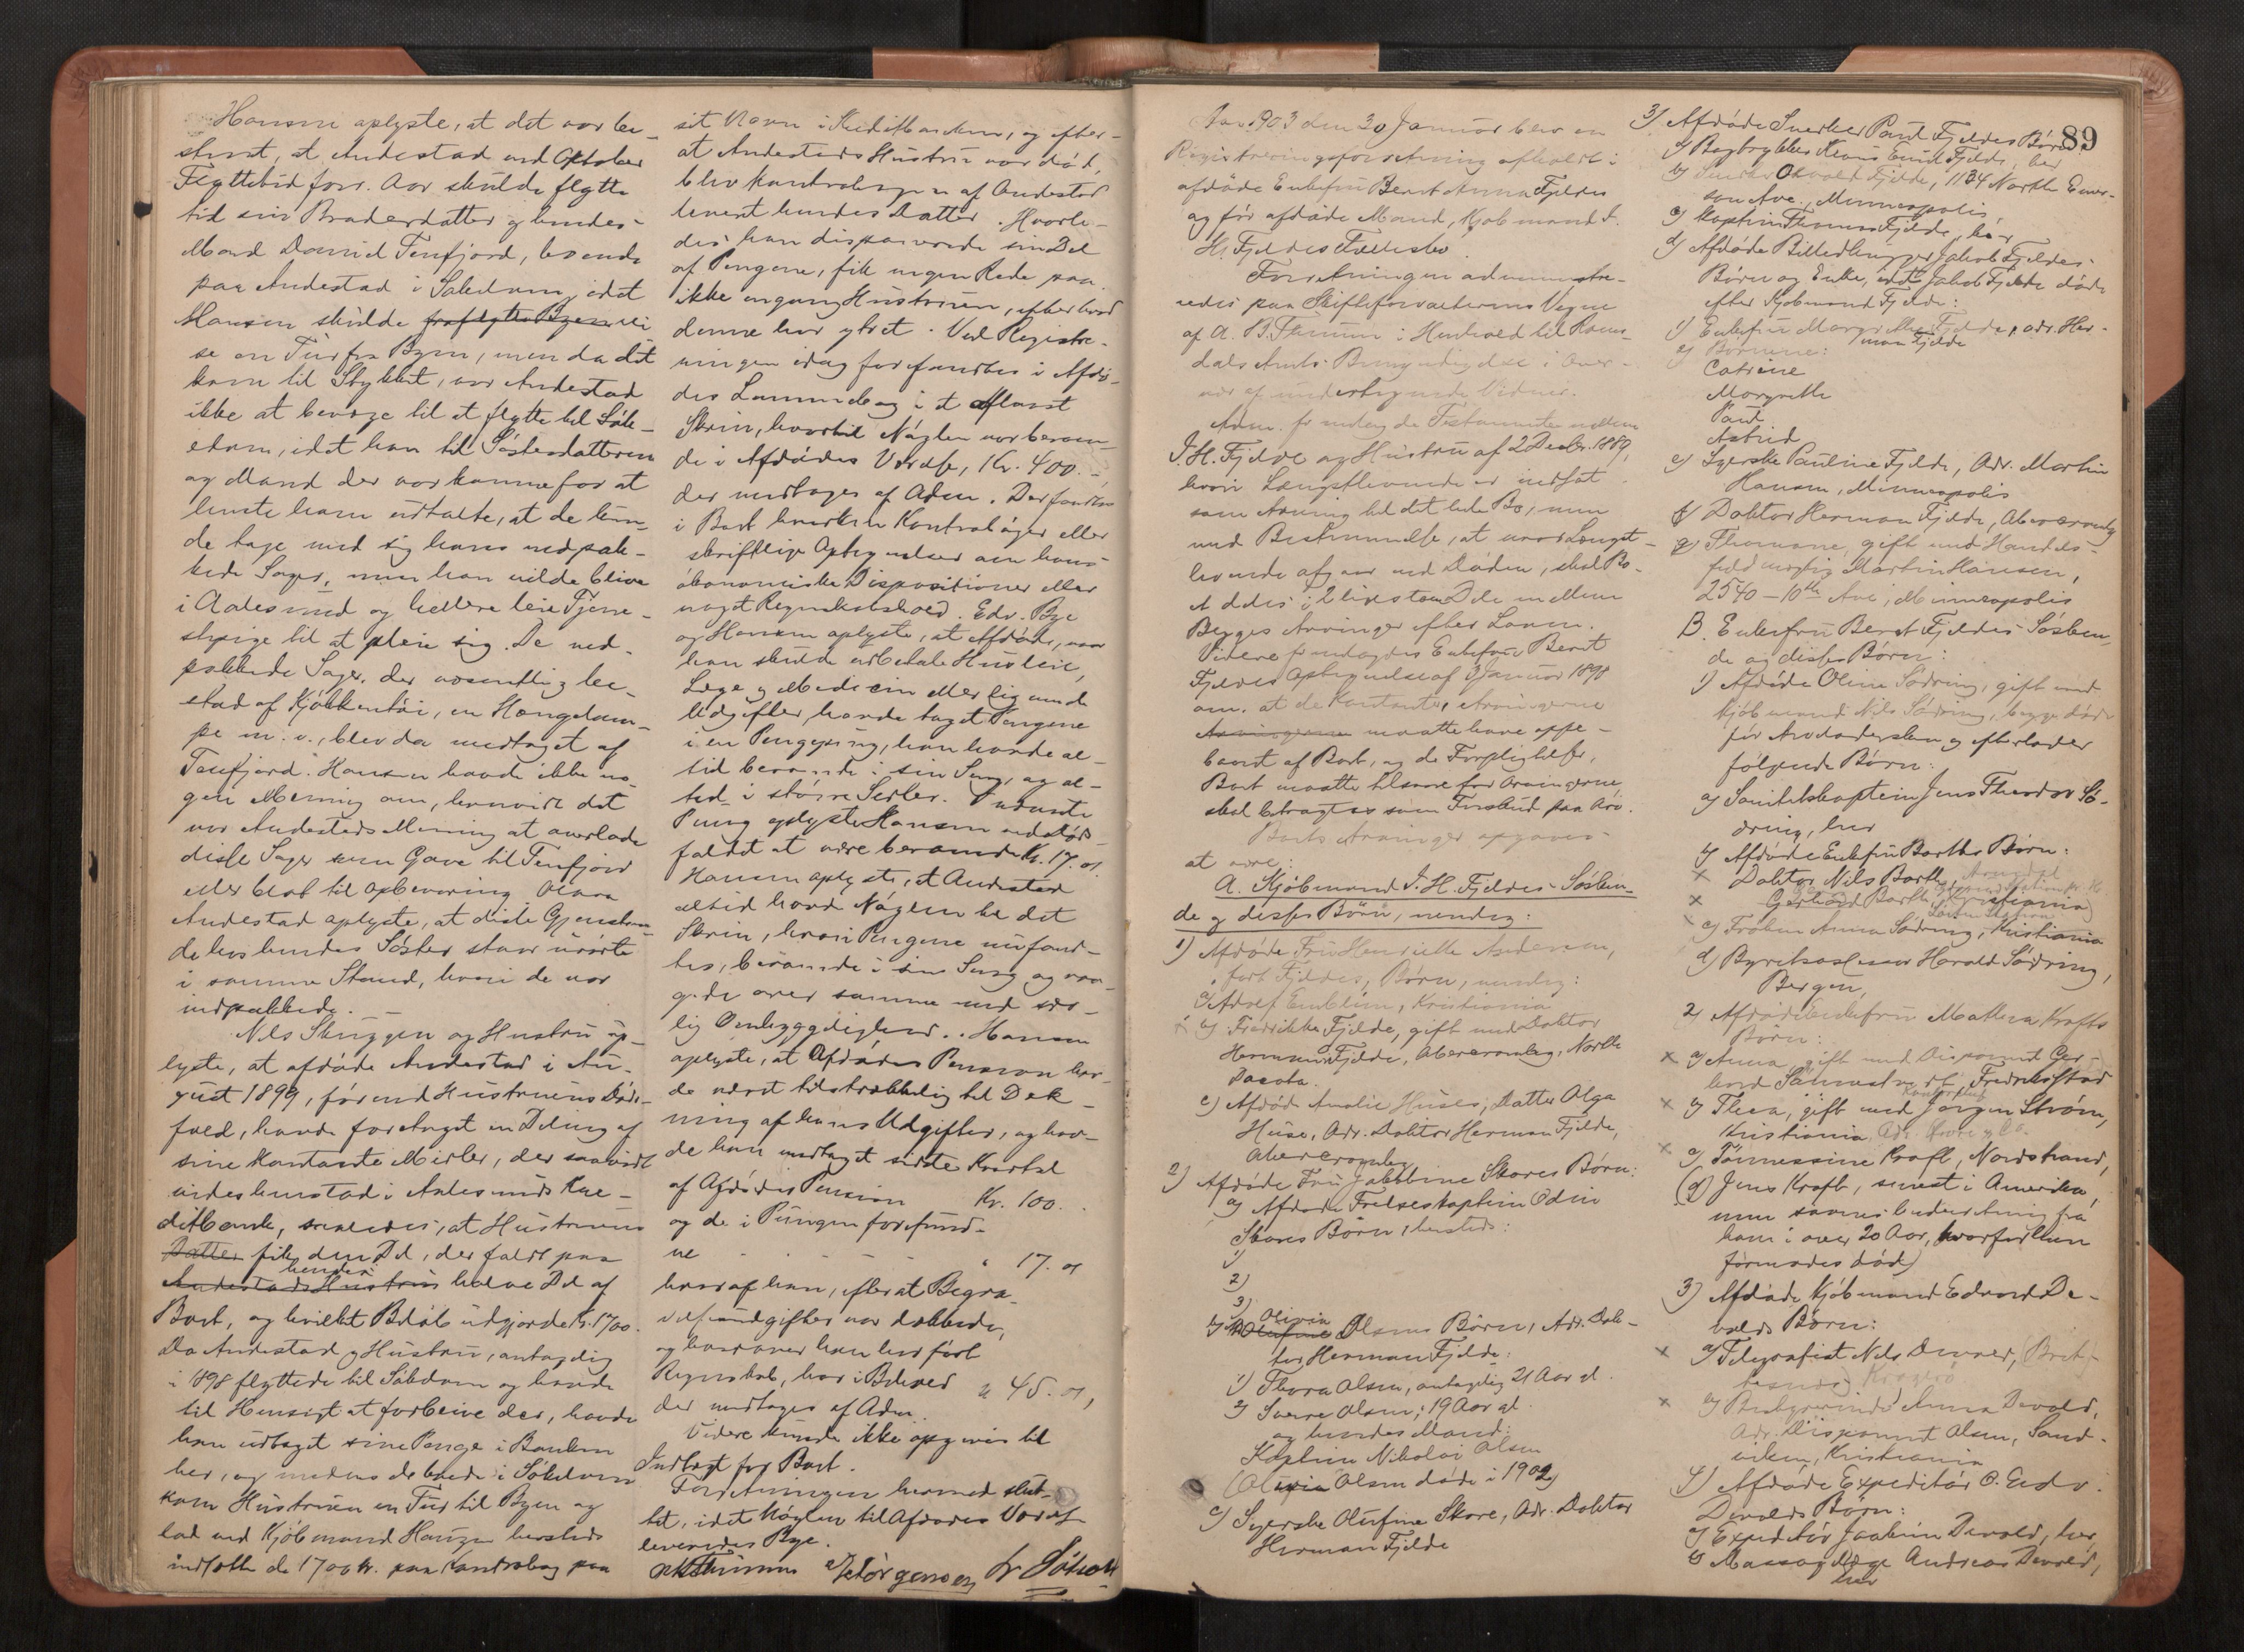 Hansen oplyste, at det var be-
stemt, at Andestad ved Oktober
Flyttetid forr. Aar skulde flytte
til sin Broderdatter og hendes
Mand Daniel Tenfjord, boende
paa Andestad i Søkelven, idet
Hansen skulde fraflytte Byen
se en Tur fra Byen, men da det
kom til Stykket, var Andestad
ikke at bevæge til at flytte til Søk-
elven, idet han til Søsterdatteren
og Mand der var komne for at
hente ham udtalte, at de kun-
de tage med sig hans nedpak-
kede Sager, men han vilde blive
i Aalesund og hellere leie Tjene-
stepige til at pleie sig. De ned-
pakkede Sager, der væsentlig be-
stod af Kjøkkentøi, en Hængelam-
pe m. v., blev da medtaget af
Tenfjord. Hansen havde ikke no-
gen Mening om, hvorvidt det
var Andestads Mening at overlade
disse Sager som Gave til Tenfjord
eller blot til Opbevaring. Olava
Andestad oplyste, at disse Gjenstan-
de hos hendes Søster staar urørte
i samme Stand, hvori de var
indpakkede. -
Nils Skuggen og Hustru op-
lyste, at afdøde Andestad i Au-
gust 1899, førend Hustruens Døds-
fald, havde foretaget en Deling af
sine kontante Midler, der saavidt
vides henstod i Aalesunds Kre-
ditbank, saaledes, at Hustruens
Datter fik den Del, der faldt paa
hendes
Andestads Hustrus halve Del af
Boet, og hvilket Beløb udgjorde Kr. 1700.
Da Andestad og Hustru, antagelig
i 1898 flyttede til Søkelven og havde
til Hensigt at forblive der, havde
han udtaget sine Penge i Banken
her, og medens de boede i Søkelven
kom Hustruen en Tur til Byen og
lod ved Kjøbmand Hansen hersteds
indsætte de 1700 Kr. paa Kontrabog paa
sit Navn i Kreditbanken, og efter-
at Andestads Hustru var død,
blev Kontrabogen af Andestad
leveret hendes Datter. Hvorle-
des han disponerede sin Del
af Pengene, fik ingen Rede paa
ikke engang Hustruen, efter hvad
denne har ytret. Ved Registre-
ringen idag forefandtes i Afdø-
des Lommebog i et aflaast
Skrin, hvortil Nøglen var beroen-
de i Afdødes Værelse, Kr. 400.-,
der modtoges af Adm. Der fandtes
i Boet hverken Kontrabøger eller
skriftlige Optegnelser om hans
økonomiske Dispositioner eller
noget Regnskabshold. Edv. Bye
og Hansen oplyste, at Afdøde, naar
han skulde udbetale Husleie,
Læge og Medicin eller lignende
Udgifter, havde taget Pengene
i en Pengepung, han havde al-
tid beroende i sin Seng, og al-
tid i større Sedler. I nævnte
Pung oplyste Hansen ved Døds-
faldet at være beroende Kr. 17.01
Hansen oplyste, at Andestad
altid havde Nøglen til det
Skrin, hvori Pengene nu fand-
tes, beroende i sin Seng og vaa-
gede over samme med sær-
lig Omhyggelighed. Hansen
oplyste, at Afdødes Pension hav-
de været tilstrækkelig til Dæk-
ning af hans Udgifter, og hav-
de han modtaget sidste Kvartal
af Afdødes Pension Kr. 100.
og de i Pungen forefund-
ne - - - " 17.01
hvoraf han, efterat Begra-
velsesudgifter var dækkede,
og hvorover han har ført
Regnskab, har i Behold " 45.01,
der modtoges af Adm.
Videre kunde ikke opgives til
Indtægt for Boet.
Forretningen hermed slut-
tet, idet Nøglen til Afdødes Værelse
leveredes Bye.
89
Aar 1903 den 30 Januar blev en
Registreringsforretning afholdt i
afdøde Enkefru Beret Anna Fjeldes
og før afdøde Mand, Kjøbmand I.
H. Fjeldes Fællesbo.
Forretningen administre-
redes paa Skifteforvalterens Vegne
af A. B. Thinum i Henhold til Roms-
dals Amts Bemyndigelse i Over-
vær af undertegnede Vidner.
Adm. fremlagde Testamente mellem
I. H. Fjelde og Hustru af 2 Decbr. 1889,
hvori Længstlevende er indsat
som Arving til det hele Bo, men
med Bestemmelse, at naar Længst-
levende afgaar ved Døden, skal Bo-
et deles i 2 lige store Dele mellem
Begges Arvinger efter Loven.
Videre fremlagdes Enkefru Beret
Fjeldes Optegnelse af 3 Januar 1898
om, at de Kontanter, Arvingerne
Arvingerne maatte have oppe-
baaret af Boet, og de Forpligtelser,
Boet maatte tilsvare for Arvingerne,
skal betragtes som Forskud paa Arv.
Boets Arvinger opgaves
at være:
A. Kjøbmand I. H. Fjeldes Søsken-
de og disses Børn, nemlig:
1) Afdøde Fru Henriette Andersen,
født Fjeldes, Børn, nemlig:
a) Adolf Emblem, Kristiania
b) Fredrikke Fjelde, gift med Doktor
Herman Fjelde, Abercrombey, North
Dacota.
c) Afdøde Amalie Huses, Datter Olga
Huse, Adr. Doktor Herman Fjelde,
Abercrombey
2) Afdøde Fru Jakobine Skores Børn:
a) Afdøde Frelseskaptein Odin
Skores Børn, hersteds:
1)
2)
3)
Olivia
b) Olufine Olsens Børn, Adr. Dok-
tor Herman Fjelde:
1) Thora Olsen, antagelig 21 Aar gl.
2) Sverre Olsen, 19 Aar gl.
og hendes Mand:
Kaptein Nikolai Olsen
(Olivia Olsen døde i 1902)
c) Syerske Olufine Skore, Adr. Doktor
Herman Fjelde
3) Afdøde Snedker Paul Fjeldes Børn
a) Bogtrykker Klaus Emil Fjelde, her
b) Snedker Osvald Fjelde, 1134 North Emer-
son Ave., Minneapolis
c) Kaptein Thomas Fjelde, her
d) Afdøde Billedhugger Jakob Fjeldes
Børn og Enke, idet Jakob Fjelde døde
efter Kjøbmand Fjelde:
1) Enkefru Margrethe Fjelde, adr. Her-
man Fjelde
2) Børnene:
Catrine
Margrethe
Paul
Astrid
e) Syerske Pauline Fjelde, Adr. Martin
Hansen, Minneapolis
f) Doktor Herman Fjelde, Abercromby
g) Thomane, gift med Handels-
fuldmægtig Martin Hansen,
2540 - 10th Ave, Minneapolis
B. Enkefru Beret Fjeldes Søsken-
de og disses Børn:
1) Afdøde Oline Sødring, gift med
Kjøbmand Nils Sødring, begge døde
før Arveladersken og efterlader
følgende Børn:
a) Sanitetskaptein Jens Theodor Sø-
dring, her
b) Afdøde Enkefru Barths Børn:
x Doktor Nils Barth, Arendal
x Gerhard Barth, (Kristiania)
x c) Frøken Anna Sødring, Kristiania
d) Byretsassessor Harald Sødring,
Bergen,
2) Afdøde Enkefru Mathea Krafts
Børn:
x a) Anna, gift med Disponent Ger-
hard, Fredrikstad
x b) Thea, gift med Jørgen Strøm,
Kristiania
x c) Tønnessine Kraft, Nordstrand,
(d) Jens Kraft, senest i Amerika,
men savnes Underretning fra
ham i over 20 Aar, hvorfor han
formodes død)
3) Afdøde Kjøbmand Edvard De-
volds Børn:
x a) Telegrafist Nils Devold,
Kragerø
x b) Bestyrerinde Anna Devold,
Adr. Disponent Olsen, Sand-
viken, Kristiania
4) Afdøde Expeditør O. Edv.
Devolds Børn:
a) Expeditør Joakim Devold, her,
b) Massagelæge Andreas Devold,
her